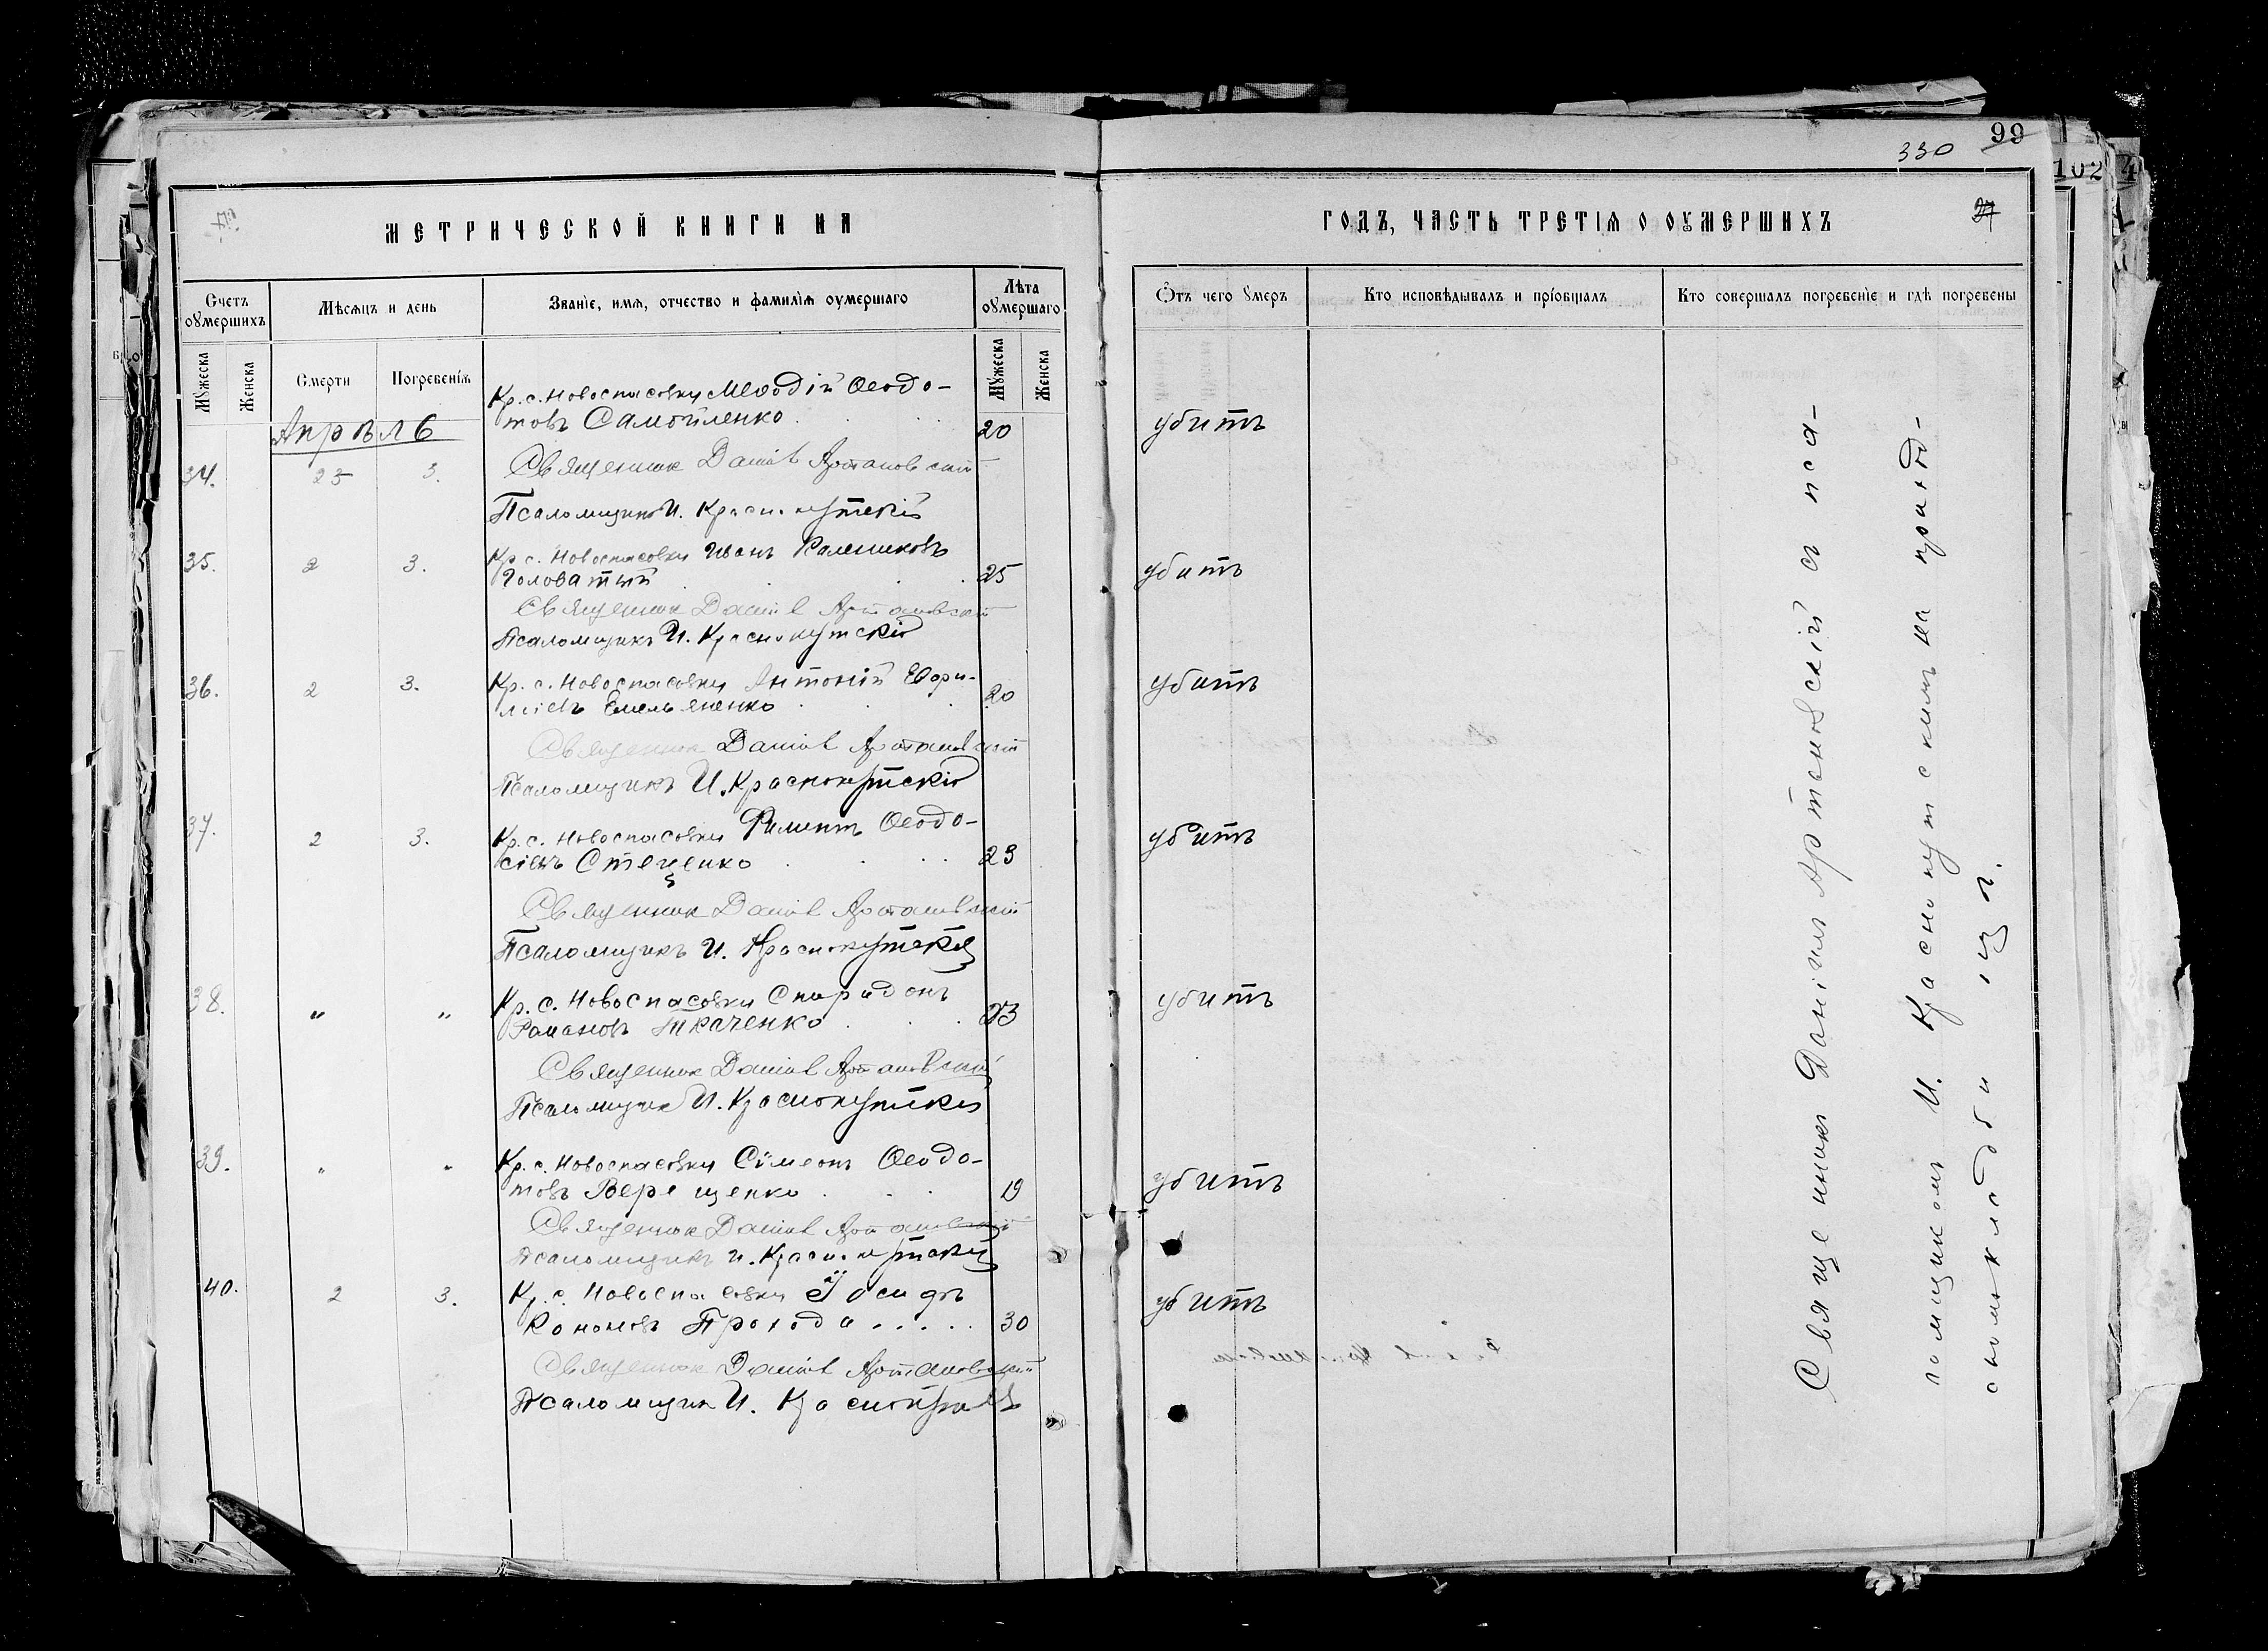 99
330
МЕТРИЧЕСКОЙ КНИГИ НА
ГОДЪ, ЧАСТЬ ТРЕТІѦ О ОУМЕРШИХЪ
Счетъ оумершихъ
Мѣсѧцъ и день
Званіе, имѧ, отчество и фамиліѧ оумершаго
Лѣта оумершаго
Мꙋжеска
Женска
Смерти
Погребеніѧ
Мꙋжеска
Женска
Ѿтъ чего ꙋмеръ
Кто исповѣдывалъ и пріобщалъ
Кто совершалъ погребеніе и гдѣ погребены
Апрѣль
Кр. с. Новоспасовки Меѳодій Ѳеодо-
товъ Самойленко 20 убитъ
34. 25 3.
Священник Даніил Артановский
Псаломщикъ И. Краснокутскій
35. 2 3. Кр. с. Новоспасовки Иванъ Калениковъ
Головатый 25 убитъ
Священник Даніил Артановский
Псаломщикъ И. Краснокутскій
36. 2 3. Кр. с. Новоспасовки Антоній
Емельяненко 20 убитъ
Священник Даніил Артановский
Псаломщикъ И. Краснокутскій
37. 2 3. Кр. с. Новоспасовки Ѳеодо-
сіевъ Стеценко 23 убитъ
Священник Даніил Артановский
Псаломщикъ И. Краснокутскій
38. " " Кр. с. Новоспасовки Спиридонъ
Романовъ Ткаченко 23 убитъ
Священник Даніил Артановский
Псаломщик И. Краснокутскій
39. " " Кр. с. Новоспасовки Сѵмеонъ Ѳеодо-
товъ Верещенко 19 убитъ
Священник Даніил Артановский
Псаломщикъ И. Краснокутскій
40. 2 3. Кр. с. Новоспасовки Іосифъ
Кононовъ Прохода 30 убитъ
Священник Даніил Артановский
Псаломщик И. Краснокутскій
Священникъ Даніилъ Артановскій съ пса-
ломщикомъ И. Краснокутскимъ на приход-
скомъ кладбищѣ.
102